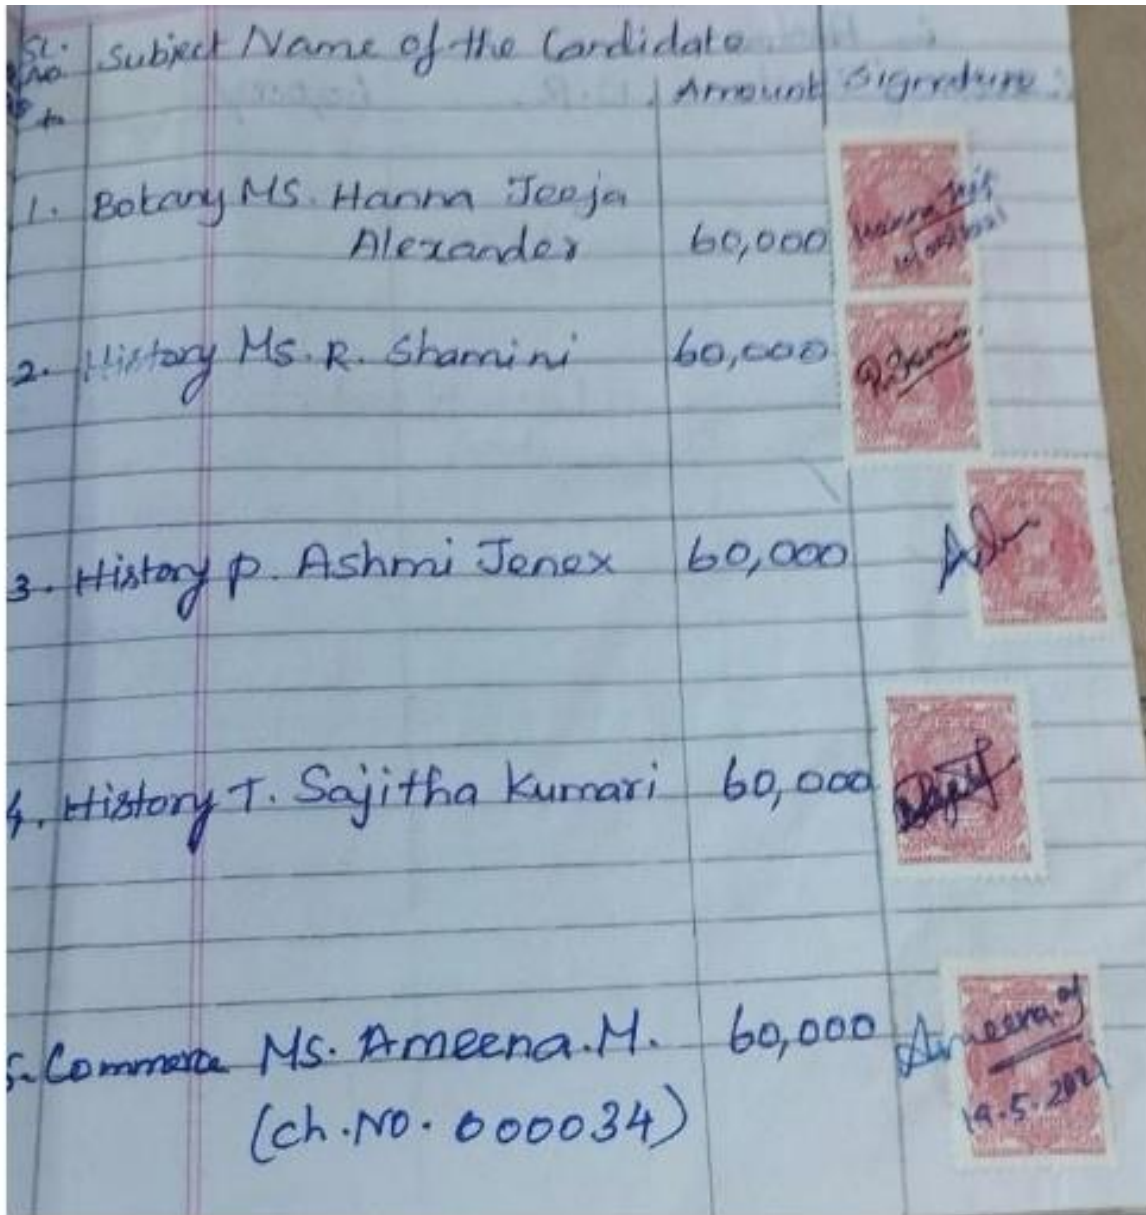 SL. Subject Name of the Candidate
No. Amount Signature:
1. Botany MS. Hanna Jeeja
Alexander 60,000
2. History Ms. R. Shamini 60,000
3. History P. Ashmi Jenex 60,000
4. History T. Sajitha Kumari 60,000
5. Commerce Ms. Ameena.M. 60,000 Ameena.M
(Ch.No. 000034) 19.5.2021